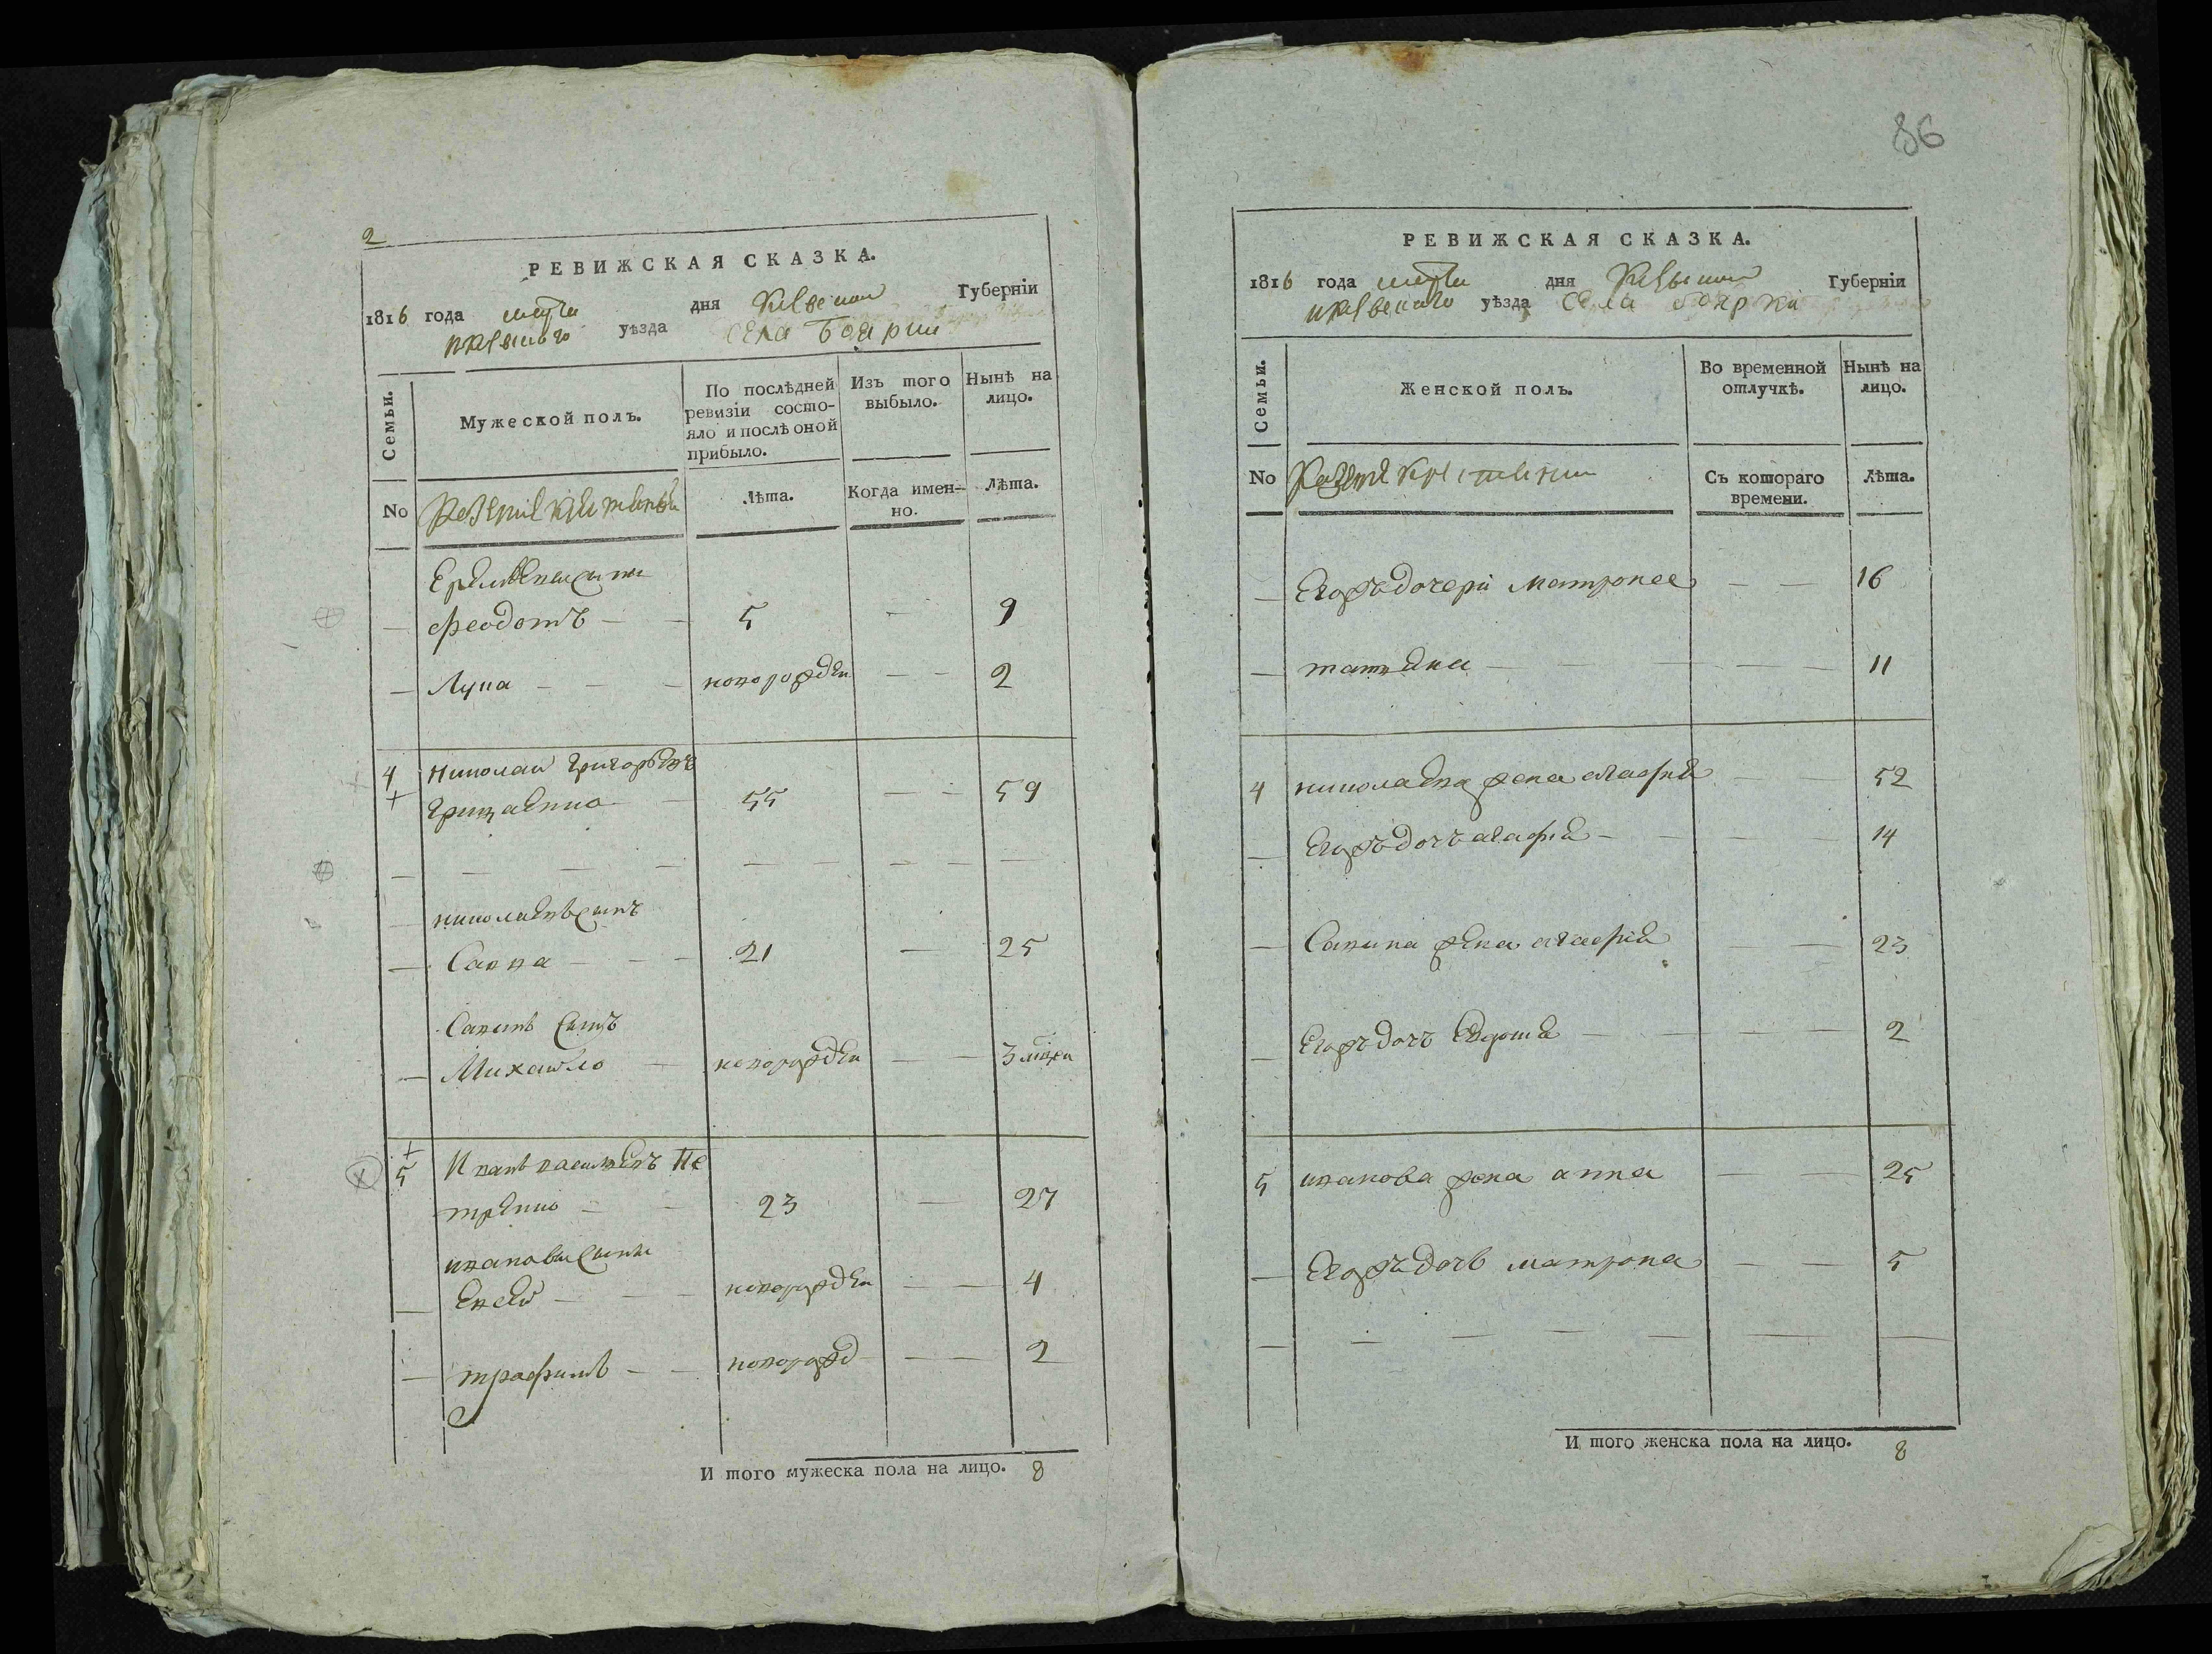 2
РЕВИЖСКАЯ СКАЗКА.
1816 года марта дня Киевской Губерніи
уѣзда села Боярки
Семьи.
Мужеской полъ.
По послѣдней ревизіи состо-
яло и послѣ оной
прибыло.
Изъ того
выбыло.
Нынѣ на
лицо.
No
Лѣта.
Когда имен-
но.
Лѣта.
феодотъ — — 5 — 9
Лука — — — новорожден — — 2
4 Николай Григорьевъ
Грицаенко — 55 — — 59
николаевъ сынъ
Савва — — — 21 — 25
Савинъ сынъ
Михайло — новорожден — — 3 мѣсяца
5 Иванъ васильевъ Пе
тренко — — 23 — 27
ивановы сыны
Евсей — — — новорожден — — 4
трофимъ — — новорожд — — 2
И того мужеска пола на лицо. 8
86
РЕВИЖСКАЯ СКАЗКА.
1816 года марта дня Киевской Губерніи
уѣзда села боярки
Семьи.
Женской полъ.
Во временной
отлучкѣ.
Нынѣ на
лицо.
No
Съ котораго
времени.
Лѣта.
Егожъ дочери матрона — — 16
татьяна — — — — — 11
4 николаева жена агафія — — 52
Егожъ дочъ агафія — — — — 14
Савина жена агафія — — 23
Егожъ дочъ — — — — 2
5 иванова жена анна — — 25
Егожъ дочъ матрона — — 5
И того женска пола на лицо. 8